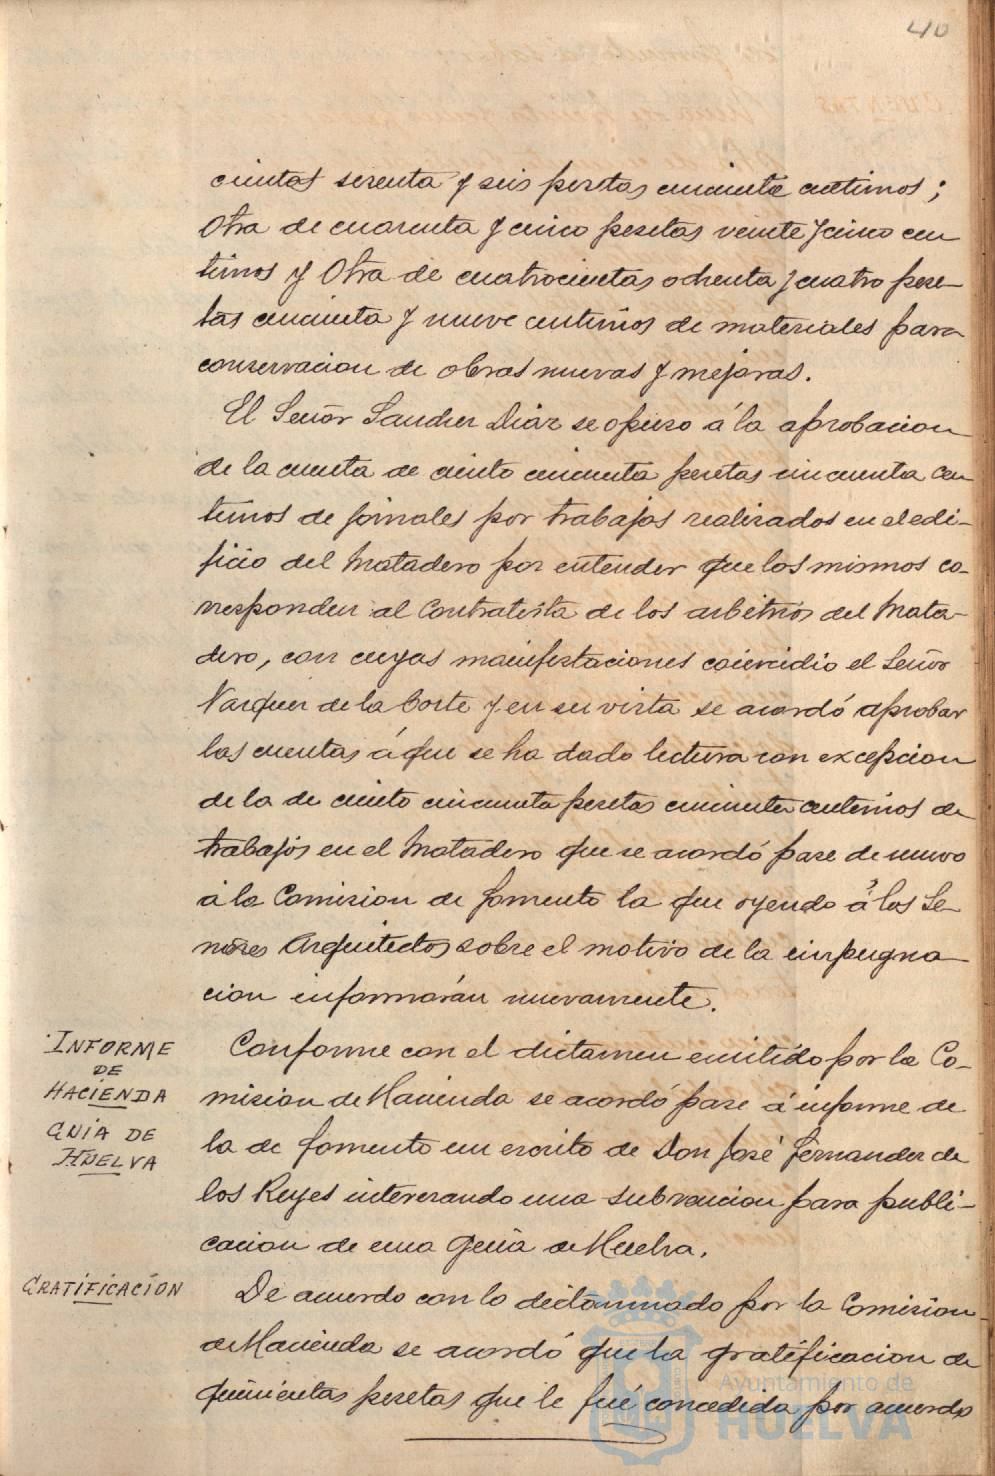 40
cientas setenta y seis pesetas cincuenta centimos;
Otra de cuarenta y cinco pesetas veinte y cinco cen
timos y Otra de cuatrocientas ochenta y cuatro pese-
tas cincuenta y nueve centimos de materiales para
conservacion de obras nuevas y mejoras.
El Señor Sanchez Diaz se opuso á la aprobacion
de la cuenta de ciento cincuenta pesetas cincuenta cen
timos de jornales por trabajos realizados en el edi-
ficio del Matadero por entender que los mismos co-
rresponden al Contratista de los arbitrios del Mata-
dero, con cuyas manifestaciones coincidio el Señor
Vazquez de la Corte y en su virta se acordó aprobar
las cuentas á que se ha dado lectura con excepcion
de la de ciento cincuenta pesetas cincuenta centimos de
trabajos en el Matadero que se acordó pase de nuevo
á la Comision de fomento la que oyendo á los Se-
ñores Arquitectos sobre el motivo de la impugna
cion informarán nuevamente.
INFORME
DE
HACIENDA
GUIA DE
HUELVA
Conforme con el dictamen emitido por la Co-
mision de Hacienda se acordó pase á informe de
la de fomento un escrito de Don José Fernandez de
los Reyes interesando una subvencion para publi-
cacion de una Guia de Huelva.
GRATIFICACION
De acuerdo con lo dictaminado por la Comision
de Hacienda se acordó que la gratificacion de
quinientas pesetas que le fué concedida por acuerdo
Ayuntamiento de
HUELVA